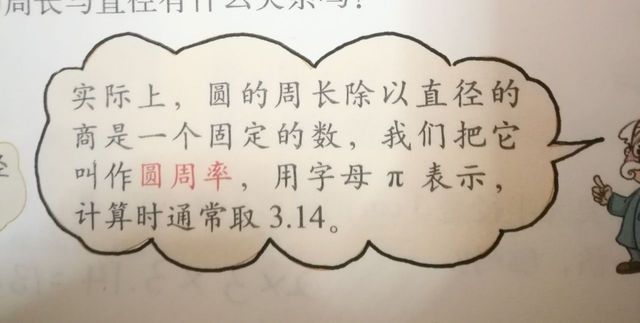 周长与直径有什么关系吗？
实际上，圆的周长除以直径的
商是一个固定的数，我们把它
叫作圆周率，用字母 π 表示，
计算时通常取 3.14。